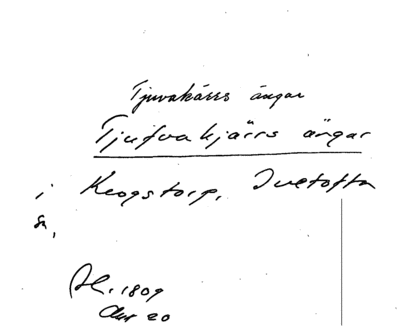 Tjuvakärrs ängar
Tjufvakjärrs ängar
i Krogstorp, Ivetofta
sn,
Ak. 1809
Akt 20